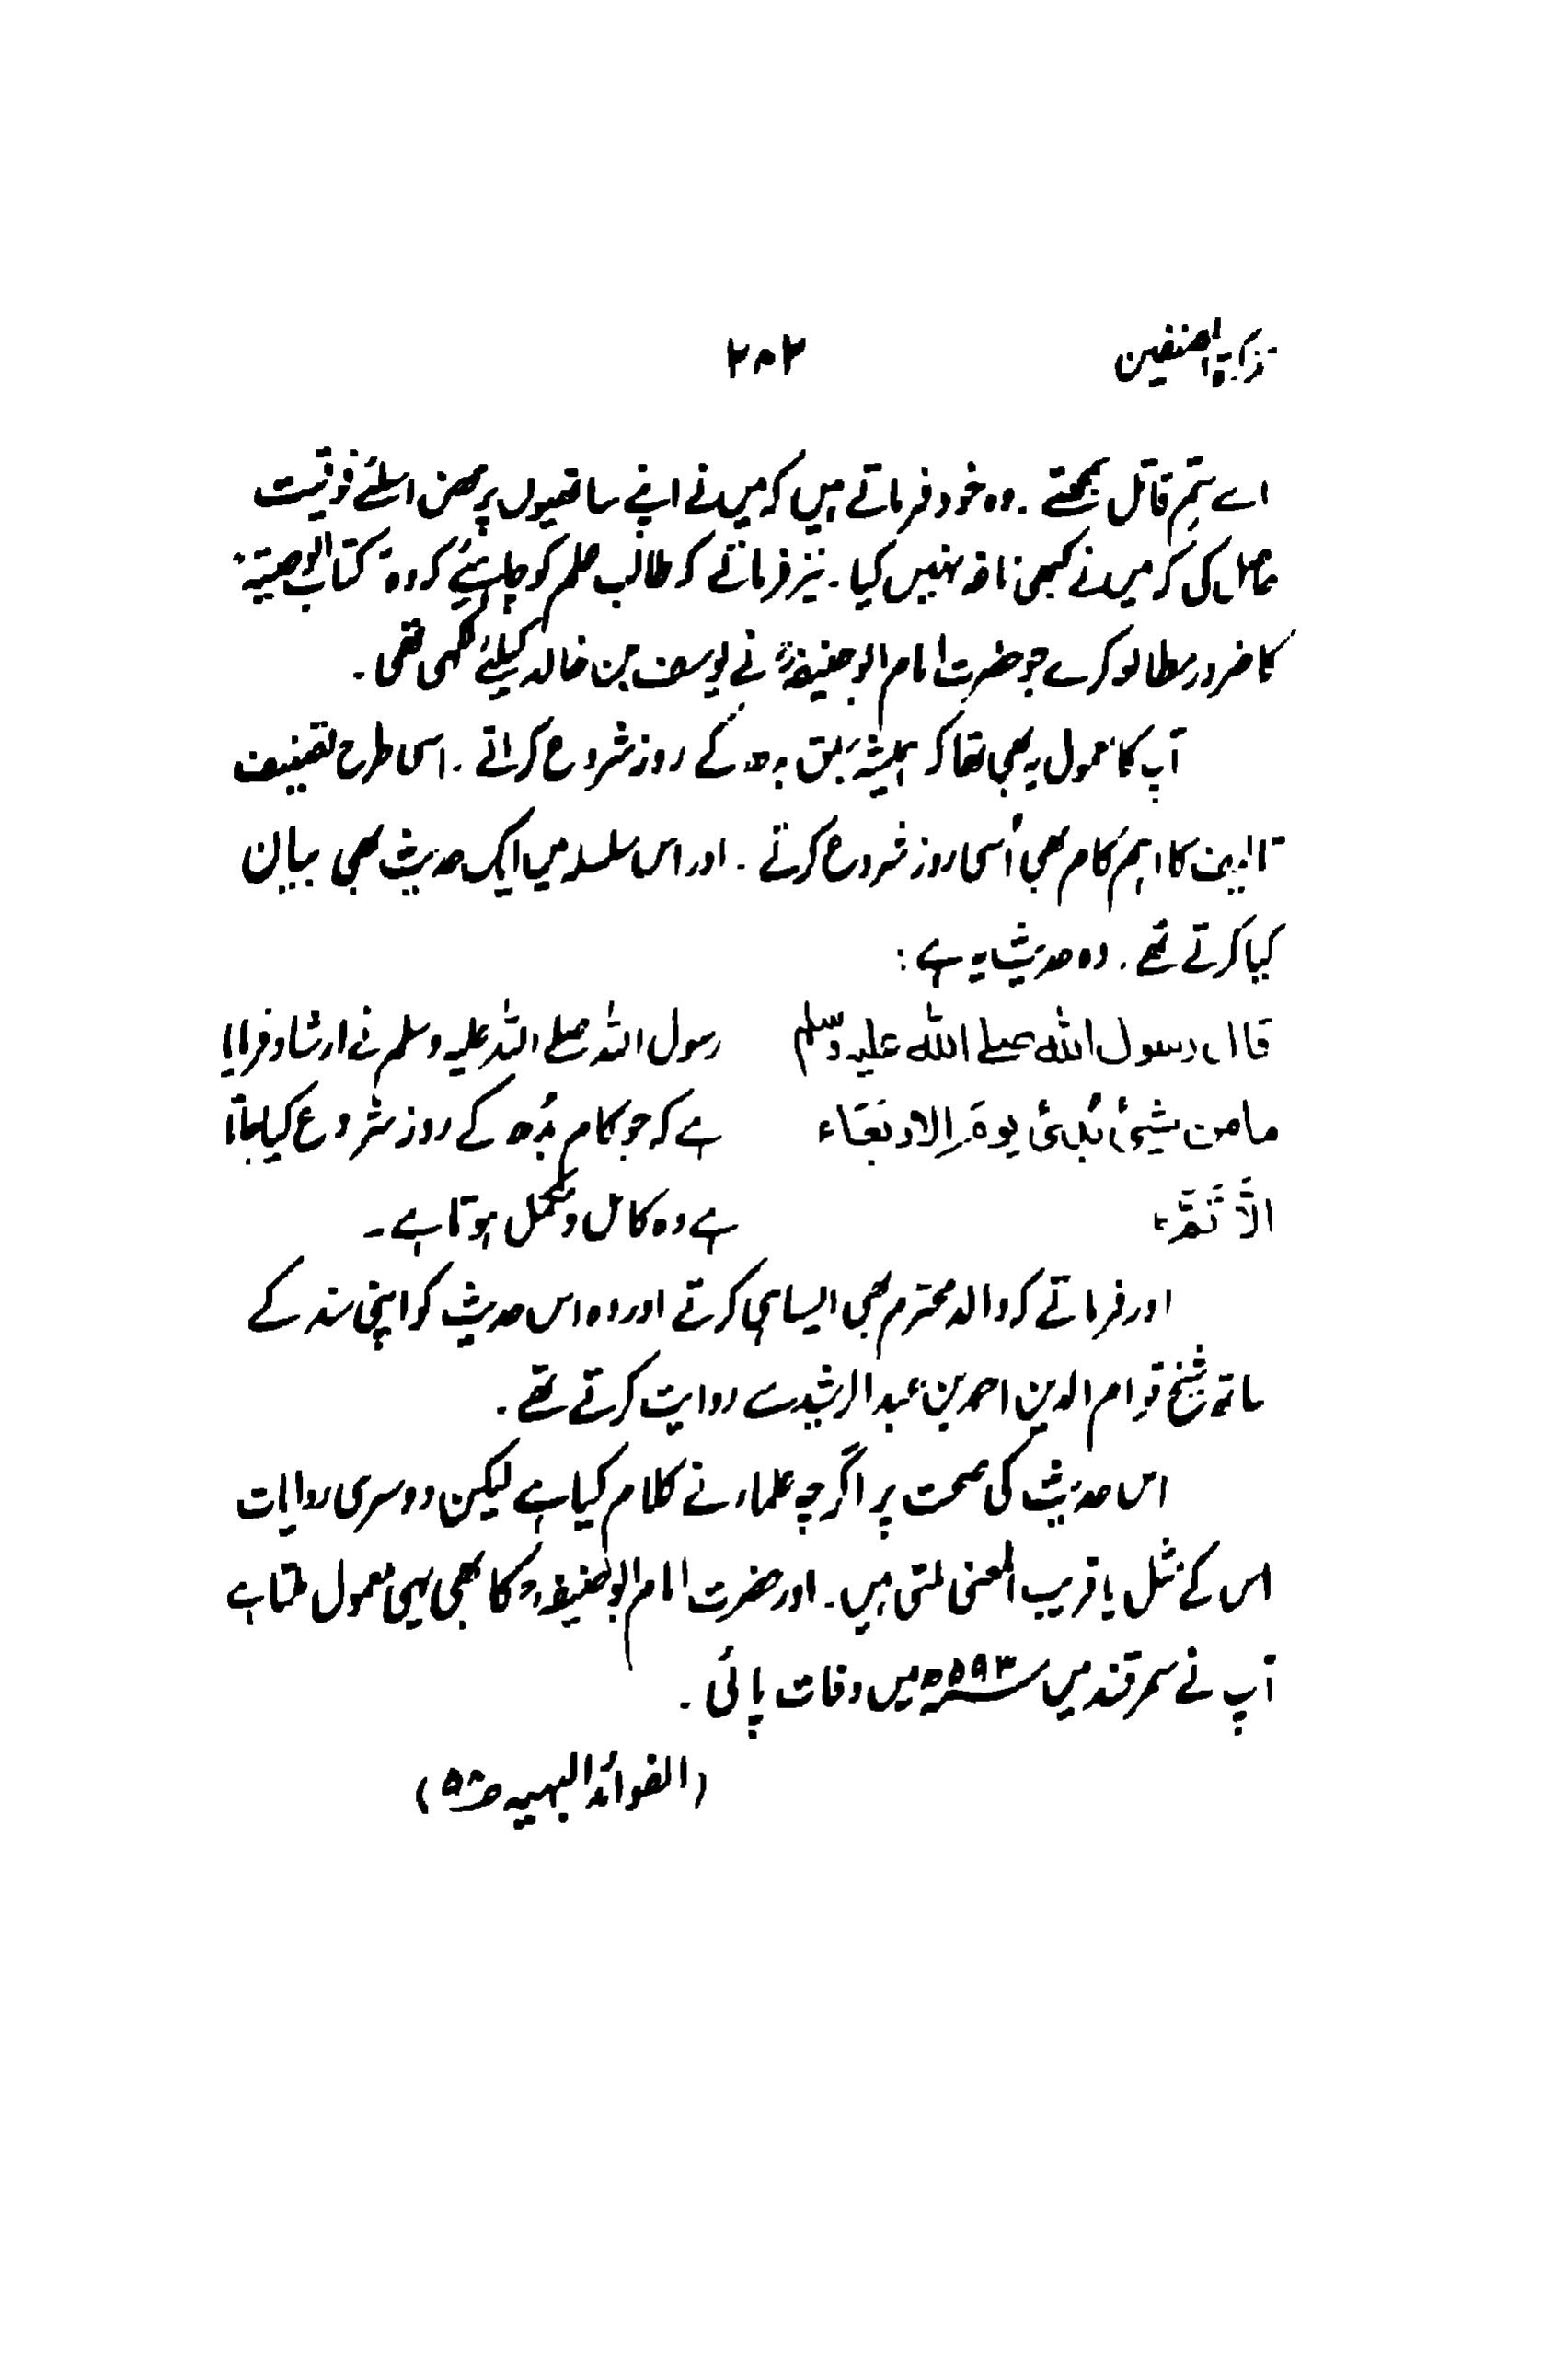 تذکرۃ المصنفین ۲۸۲
اسے سَمِّ قاتل سمجھتے ۔ وہ خود فرماتے ہیں کہ میں نے اپنے ساتھیوں پر محض اسلئے فوقیت
حاصل کی کہ میں نے کبھی ناغہ نہیں کیا ۔ نیز فرماتے کہ طالب علم کو چاہئیے کہ وہ کتاب الوصیۃ
کا ضرور مطالعہ کرے جو حضرت امام ابو حنیفہؒ نے یوسف بن خالد کیلئے لکھی تھی ۔
آپ کا معمول یہ بھی تھا کہ ہمیشہ سبق بدھ کے روز شروع کراتے ۔ اسی طرح تصنیف
تالیف کا اہم کام بھی اُسی روز شروع کرتے ۔ اور اس سلسلہ میں ایک حدیث بھی بیان
کیا کرتے تھے ۔ وہ حدیث یہ ہے :
قال رسول اللہ صلے اللہ علیہ وسلم رسول اللہ صلے اللہ علیہ وسلم نے ارشاد فرمایا
مامن شیئ بُدِئ یومَ الاربعَاء ہے کہ جو کام بُدھ کے روز شروع کیا جاتا
الَّا تَمَّ ہے وہ کامل و مکمل ہوتا ہے ۔
اور فرماتے کہ والد محترم بھی ایسا ہی کرتے اور وہ اس حدیث کو اپنی سند کے
ساتھ شیخ قوام الدین احمد بن عبد الرشید سے روایت کرتے تھے ۔
اس حدیث کی صحت پر اگرچہ علماء نے کلام کیا ہے لیکن دوسری روایات
اس کے مثل یا قریب المعنی ملتی ہیں ۔ اور حضرت امام ابو حنیفہؒ کا بھی یہی معمول ملتا ہے
آپ نے سمرقند میں ۵۹۳ھ میں وفات پائی ۔
(الفوائد البہیہ ص۵۸)